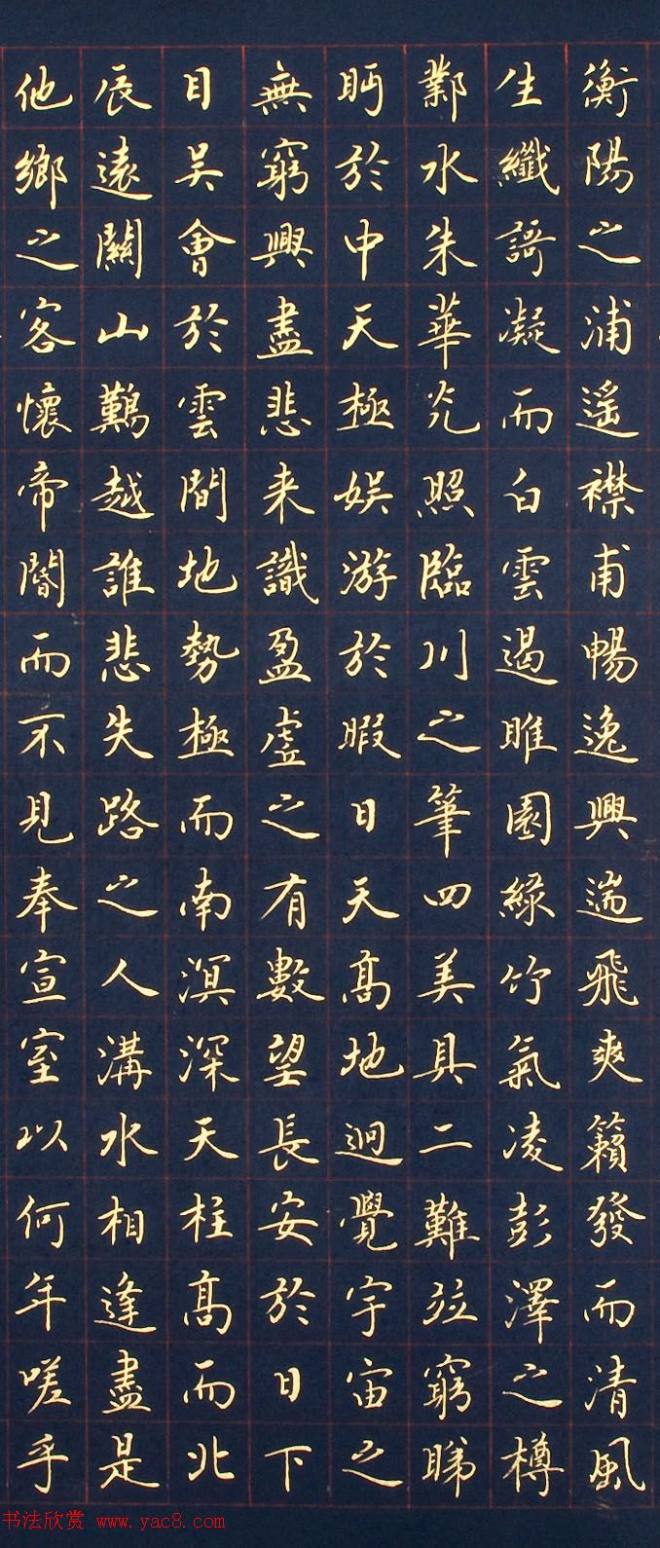 衡陽之浦遥襟甫暢逸興遄飛爽籟發而清風
生纖謌凝而白雲遏睢園綠竹氣凌彭澤之樽
鄴水朱華光照臨川之筆四美具二難並窮睇
眄於中天極娱游於暇日天高地迥覺宇宙之
無窮興盡悲来識盈虛之有數望長安於日下
目吴會於雲間地勢極而南溟深天柱高而北
辰遠關山難越誰悲失路之人溝水相逢盡是
他鄉之客懷帝閽而不見奉宣室以何年嗟乎
书法欣赏 www.yac8.com